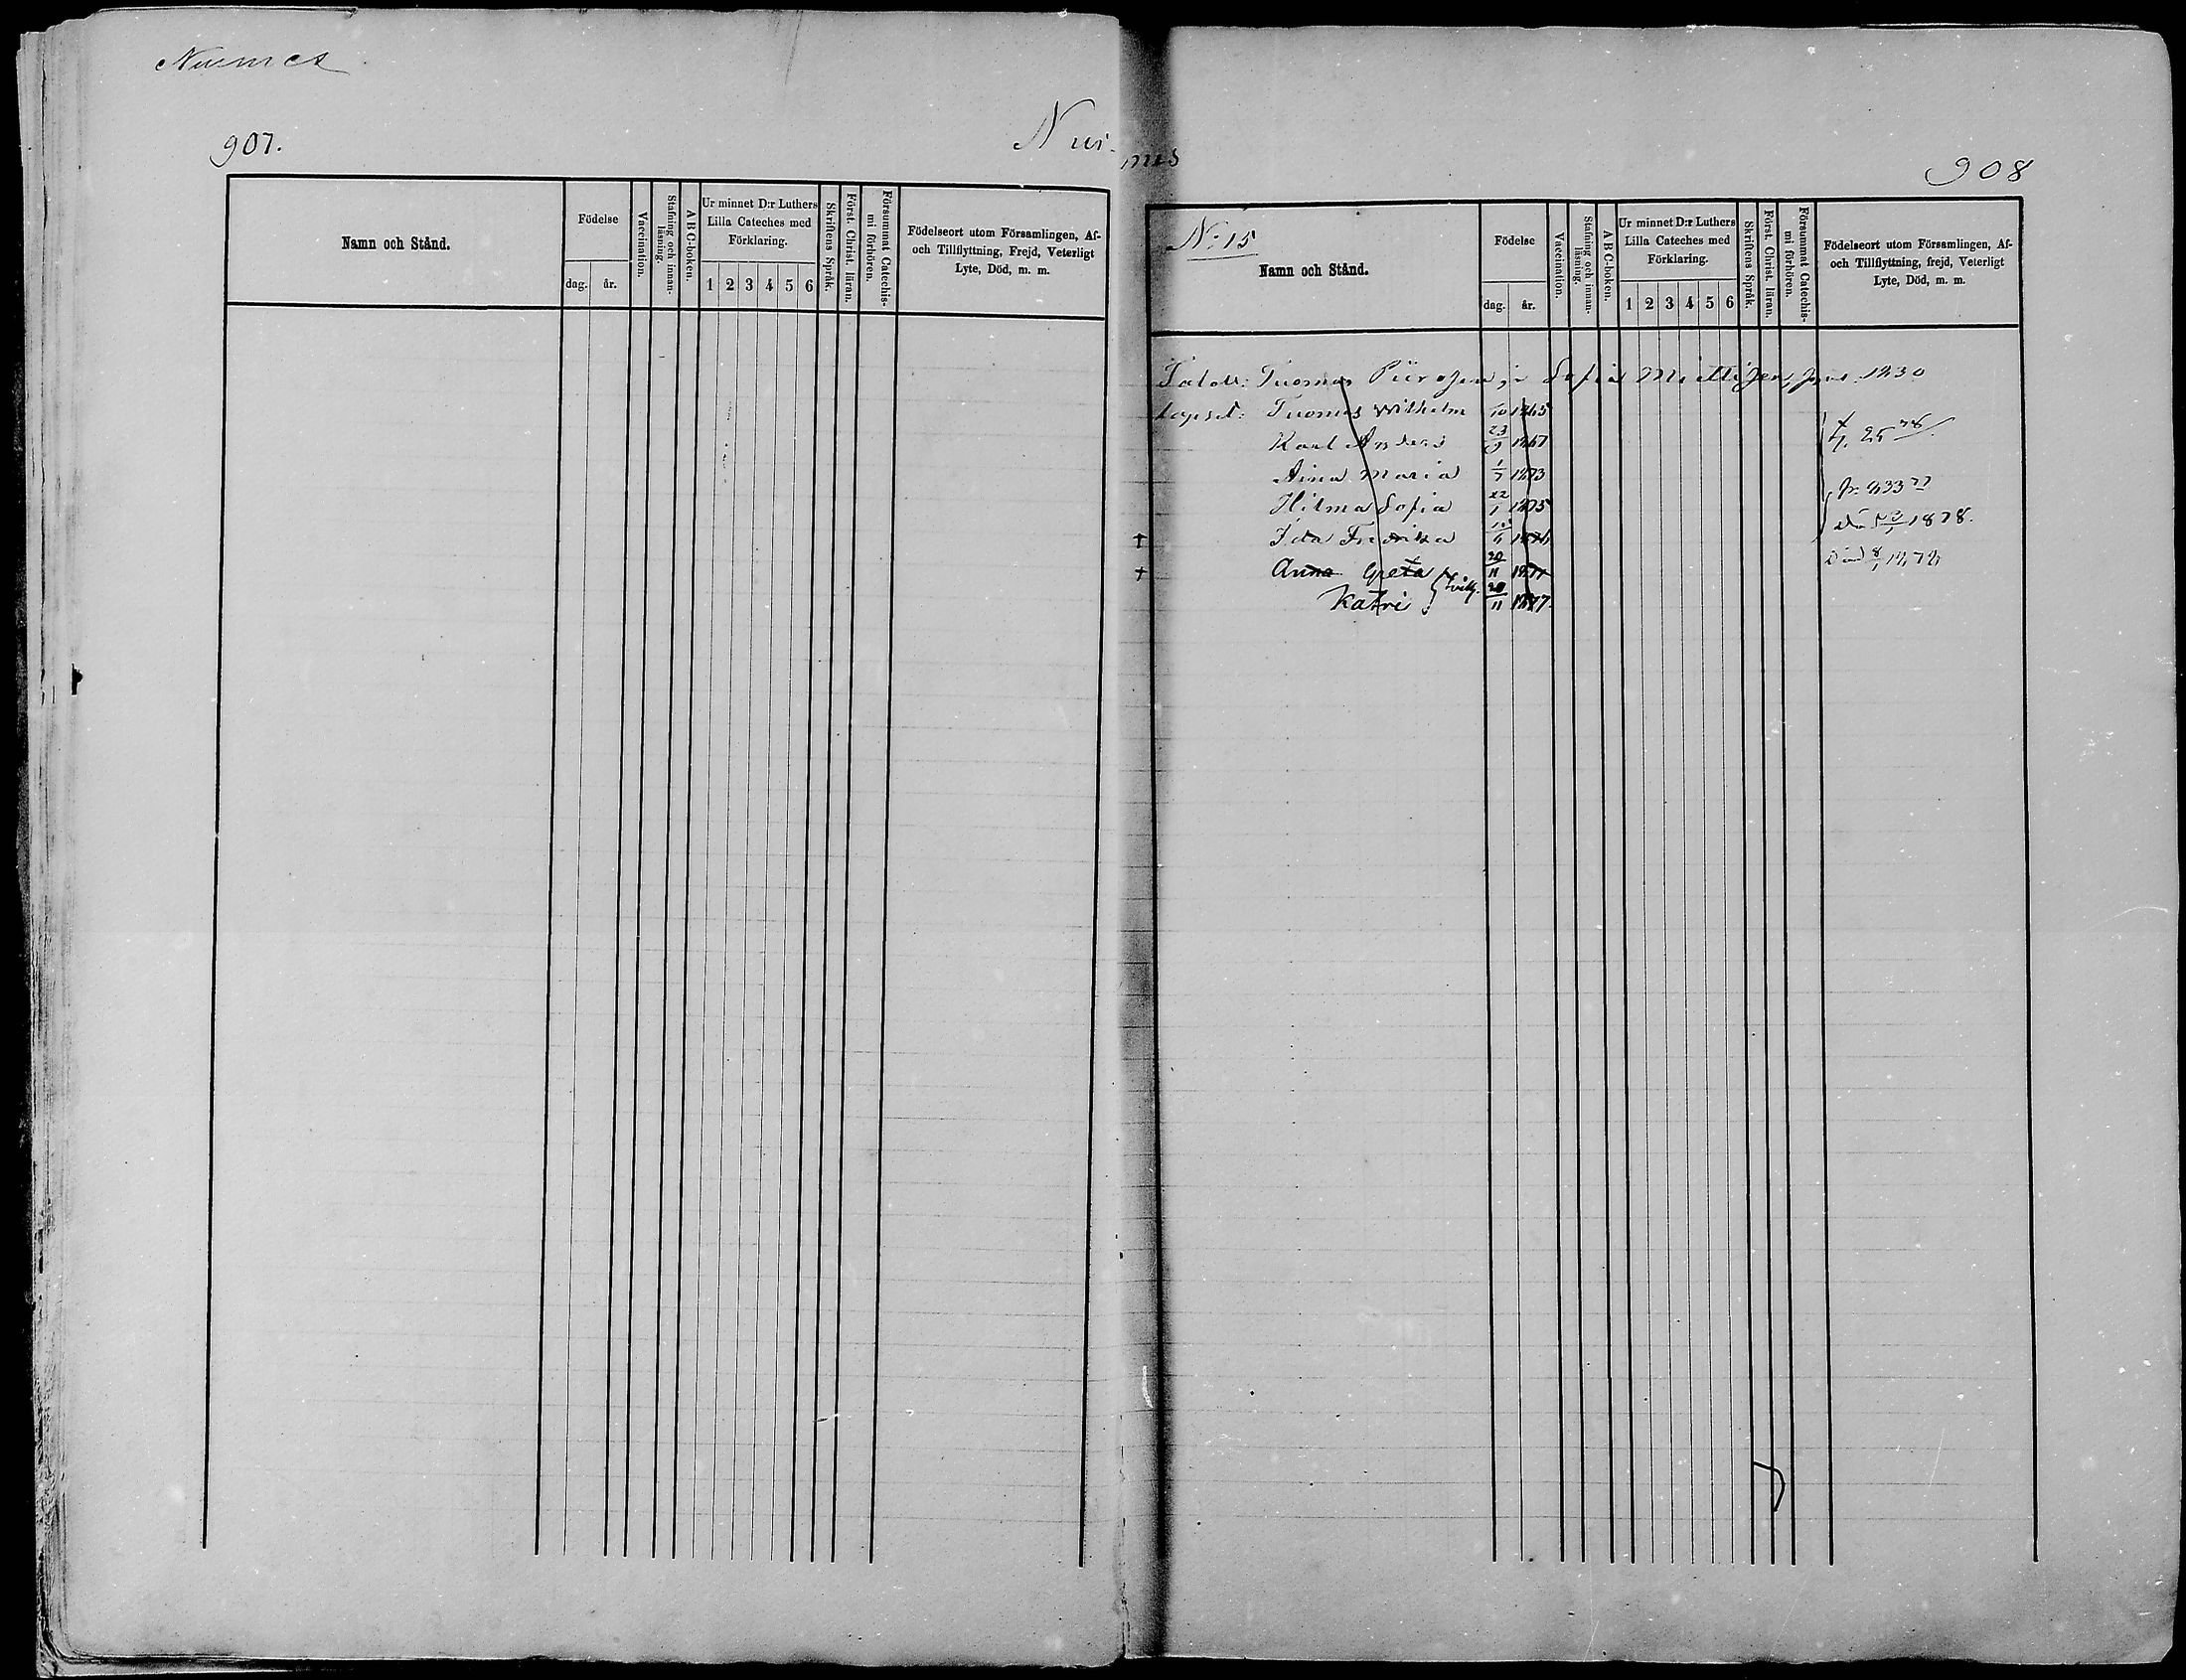 Nurmes
907.
Nur-
Namn och Stånd.
Födelse
dag.
år.
Vaccination.
Stafning och innan-
läsning.
A B C-boken.
Ur minnet D:r Luthers
Lilla Cateches med
Förklaring.
1 2 3 4 5 6
Skriftens Språk.
Först. Christ. läran.
Försummat Catechis-
mi förhören.
Födelseort utom Församlingen, Af-
och Tillflyttning, Frejd, Veterligt
Lyte, Död, m. m.
mes
908
N:o 15
Namn och Stånd.
Födelse
dag.
år.
Vaccination.
Stafning och innan-
läsning.
A B C-boken.
Ur minnet D:r Luthers
Lilla Cateches med
Förklaring.
1 2 3 4 5 6
Skriftens Språk.
Först. Christ. läran.
Försummat Catechis-
mi förhören.
Födelseort utom Församlingen, Af-
och Tillflyttning, frejd, Veterligt
Lyte, Död, m. m.
Tuomas Piiroinen ja Sofia pag. 1230
lapset: Tuomas Wilhelm 1865
Karl Anders 23/9 1867
Aina Maria 1/7 1873
Hilma Sofia 22/1 1875
† Ida Fredrika
† Anna Greta 20/11 1877
Katri } tvill. 20/11 1877
1878.
Död 8/1 1878